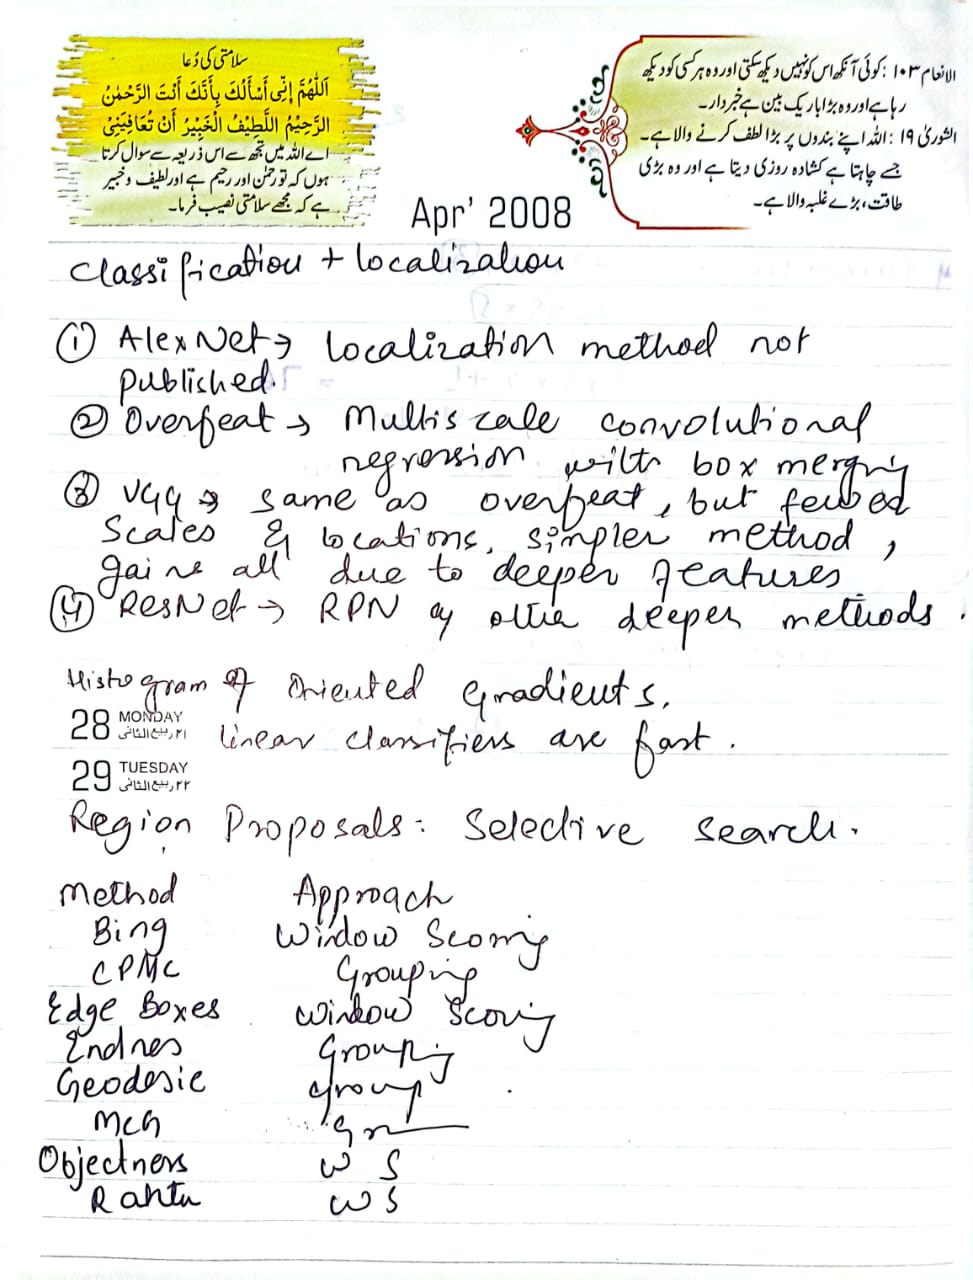 سلامتی کی دُعا
اَللّٰهُمَّ إِنِّى أَسْأَلُكَ بِأَنَّكَ أَنْتَ الرَّحْمٰنُ
الرَّحِيْمُ اللَّطِيْفُ الْخَبِيْرُ أَنْ تُعَافِيَنِىْ
اے اللہ میں تجھ سے اس ذریعہ سے سوال کرتا
ہوں کہ تو رحمٰن اور رحیم ہے اور لطیف و خبیر
ہے کہ مجھے سلامتی نصیب فرما۔
الانعام ۱۰۳ : کوئی آنکھ اس کو نہیں دیکھ سکتی اور وہ ہر کسی کو دیکھ
رہا ہے اور وہ بڑا باریک بین ہے خبردار۔
الشوریٰ ۱۹ : اللہ اپنے بندوں پر بڑا لطف کرنے والا ہے۔
جسے چاہتا ہے کشادہ روزی دیتا ہے اور وہ بڑی
طاقت، بڑے غلبہ والا ہے۔
Apr' 2008
Classification + Localization
① AlexNet → Localization method not
published.
② Overfeat → Multiscale convolutional
regression with box merging
③ VGG → same as overfeat, but fewer
Scales & locations, simpler method,
gains all due to deeper features
④ ResNet → RPN deeper methods.
Histogram of Oriented Gradients.
28 MONDAY ۲۱ ربیع الثانی linear classifiers are fast.
29 TUESDAY ۲۲ ربیع الثانی
Region Proposals: Selective search.
Method Approach
Bing Window Scoring
CPMC Grouping
Edge Boxes Window Scoring
Endres Grouping
Geodesic group
MCG Gr
Objectness W S
Rahtu W S